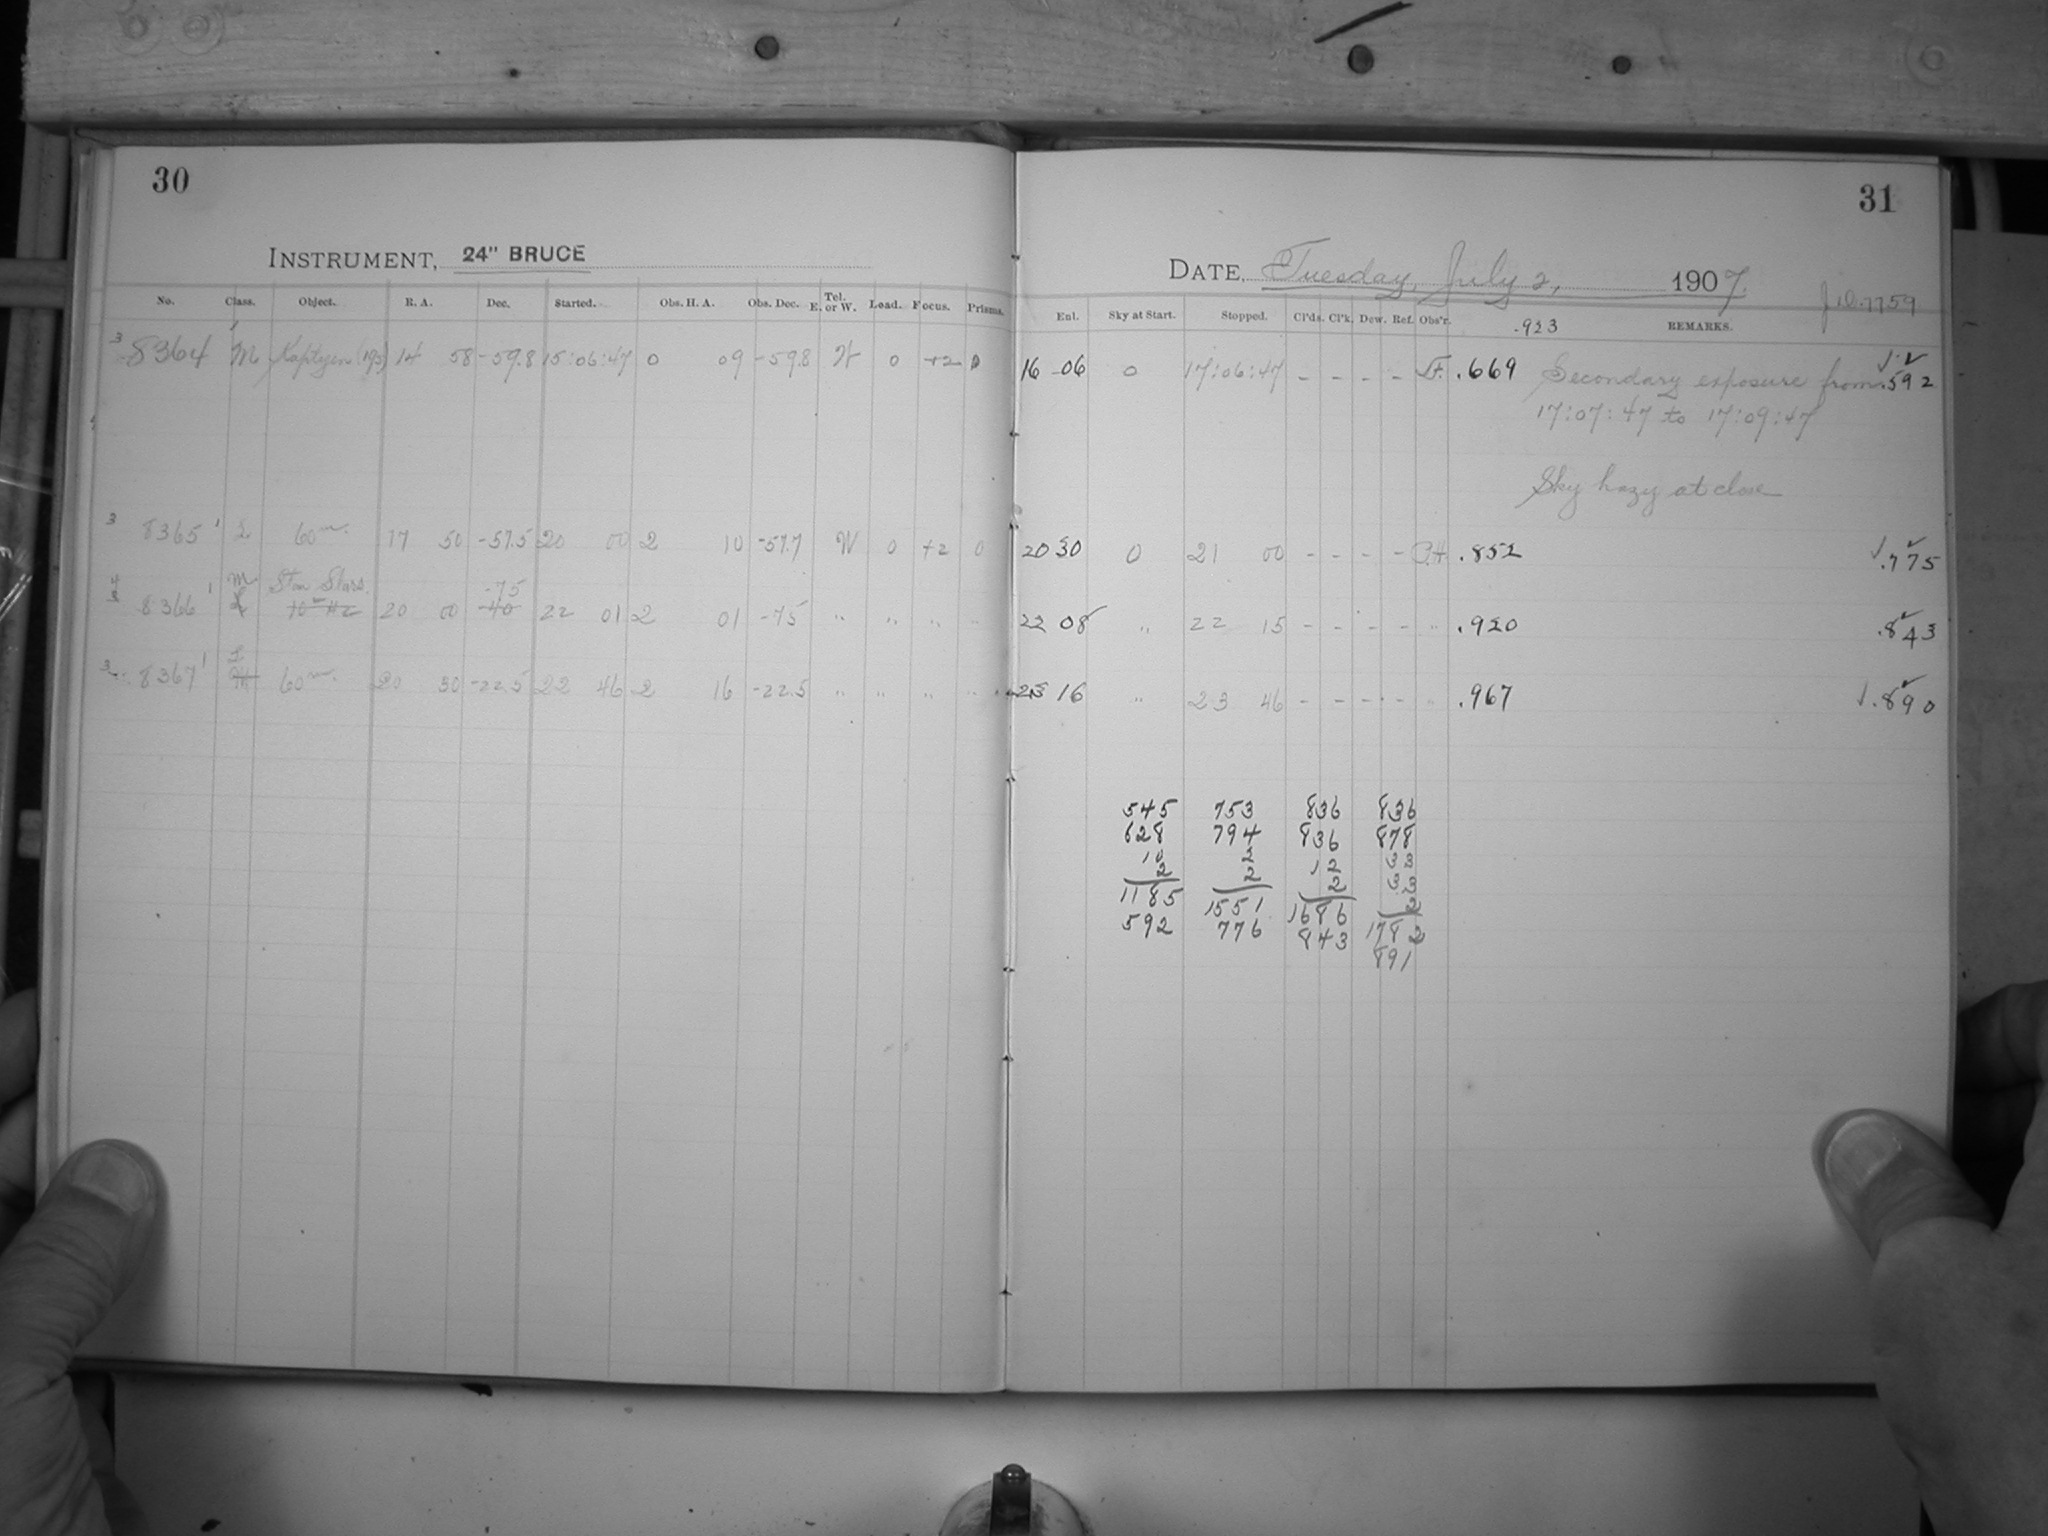 30
31
INSTRUMENT, 24" BRUCE
DATE, Tuesday, July 2, 1907.
No. Class. Object. R. A. Dec. Started. Obs. H. A. Obs. Dec. Tel. E. or W. Load. Focus. Prisms.
Enl. Sky at Start. Stopped. Cl'ds. Cl'k. Dew. Ref. Obs'r. .923 REMARKS.
3 8364 M Kapteyn (193) 14 58 -59.8 15:06:47 0 09 -59.8 W 0 +2 0 16 06 0 17:06:47 - - - - .669 Secondary exposure from .592
17:07:47 to 17:09:47
Sky hazy at close
3 8365 1 L 60m. 17 50 -57.5 20 00 2 10 -57.7 W 0 +2 0 20 30 0 21 00 - - - - .852 .775
M Stan Stars. -75
8366 1 20 00 -40 22 01 2 01 -75 " " " " 22 08 " 22 15 - - - - " .920 .843
8367 1 60m. 20 30 -22.5 22 46 2 16 -22.5 " " " " 23 16 " 23 46 - - - - " .967 .890
545 753 836 836
628 794 836 878
10 2 12 33
2 2 2 33
1185 1551 1686 2
592 776 843 1782
891